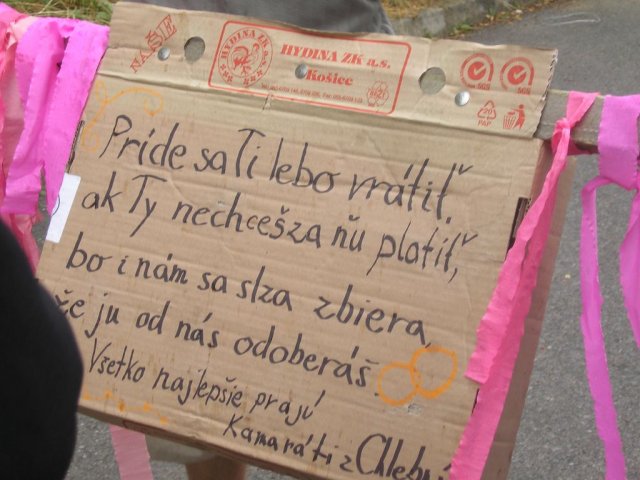 NAŠE
HYDINA ZK a.s.
Košice
SGS SGS
20
PAP
Príde sa Ti lebo vrátiť.
ak Ty nechceš za ňu platiť,
bo i nám sa slza zbiera,
že ju od nás odoberáš.
Všetko najlepšie prajú
Kamaráti z